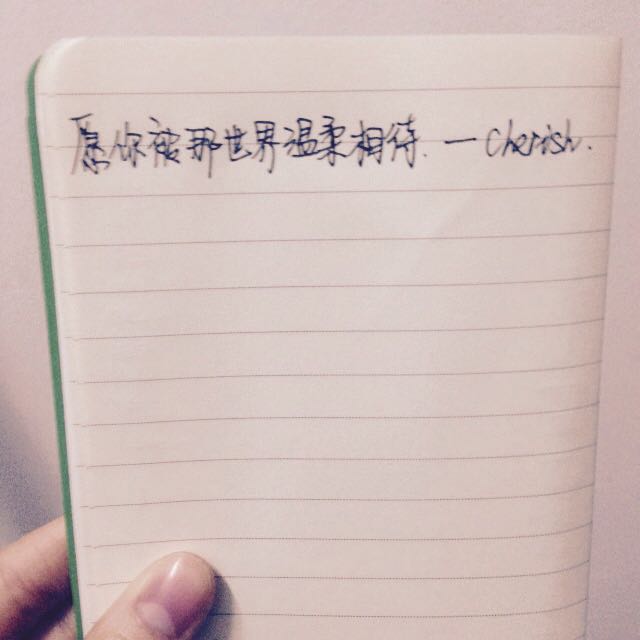 愿你被那世界温柔相待.—Cherish.